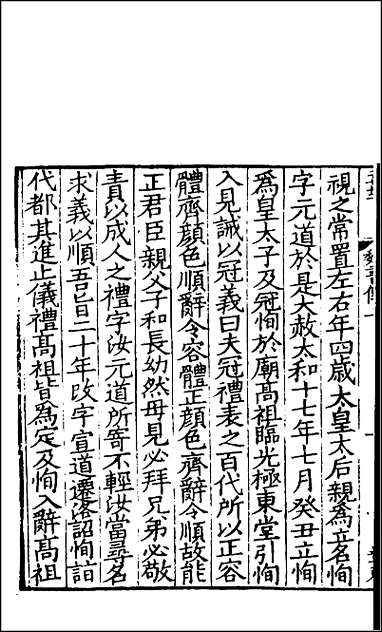 視之常置左右年四歲太皇太后親為立名恂
字元道於是大赦太和十七年七月癸丑立恂
為皇太子及冠恂於廟高祖臨光極東堂引恂
入見誡以冠義曰夫冠禮表之百代所以正容
體齊顏色順辭令容體正顏色齊辭令順故能
正君臣親父子和長幼然母見必拜兄弟必敬
責以成人之禮字汝元道所寄不輕汝當尋名
求義以順吾旨二十年改字宣道遷洛詔恂詣
代都其進止儀禮高祖皆為定及恂入辭高祖